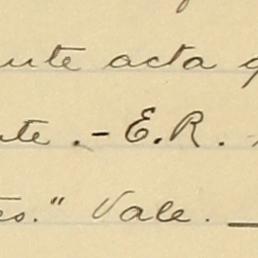 nte acta
te.-E.R.
es." Vale.